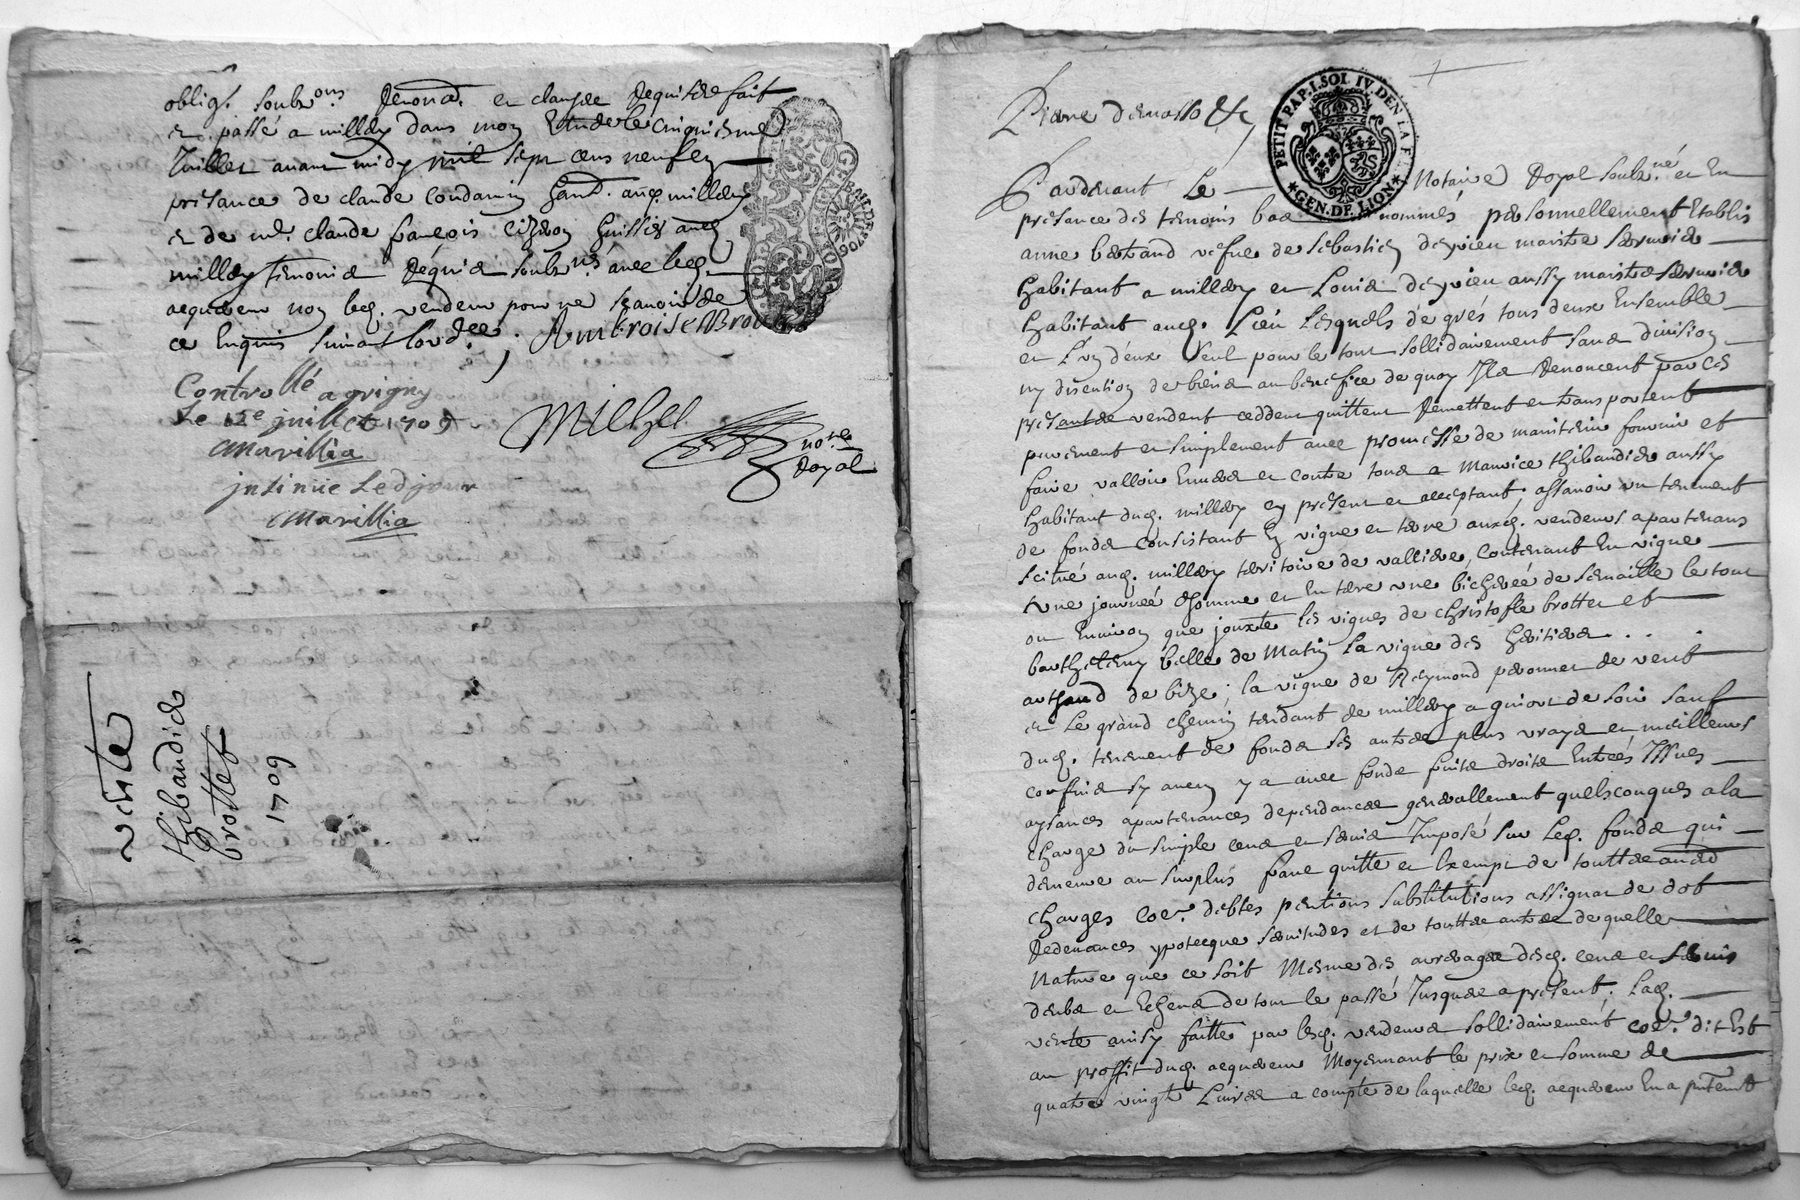 oblig. soubz.ons Renon.on et clauses Requises fait
et passé a millery dans mon Estude le cinquiesme
Juillet avant midy mil sept cens neuf en
presance de claude condamin hant. aud. millery
et de me. claude françois huissier aud.
millery temoins Requis soubz.nés avec led.
acquereur non led. vendeur pour ne scavoir de
ce Enquis suivant l'ord.ce ; Ambroise Brot
Controllé a grigny
Le 12e juillet 1709
Marillia
jnsinué Led jour
Marillia
Michel
no.re
Royal
vente
thibaudier
brottet
1709
PETIT PAP. I. SOL. IV. DEN. LA F.
GEN. DE LION
Pardevant Le Notaire Royal soubz.né et En
presance des temoins bas nommés personnellement Establis
anne bertrand vefve de sebastien deyrieu maistre serrurier
habitant a millery et Louis deyrieu aussy maistre serrurier
habitant aud. Lieu Lesquels de grés tous deux Ensemble
et L'un d'eux seul pour le tout sollidairement sans division
ny discution de biens au benefice de quoy Ils Renoncent par ces
presantes vendent ceddent quittent Remettent et transportent
purement et simplement avec promesse de maintenir fournir et
faire valloir Envers et contre tous a Maurice thibaudier aussy
habitant dud. millery cy present et acceptant, assavoir un tenement
de fonds consistant En vigne et terre auxd. vendeurs apartenans
scitué aud. millery territoire de vallieres, contenant En vigne
une journée d'homme et En terre une bicherée de semaille le tout
ou Environ que jouxte les vignes de christofle brottet et
barthelemy belle de Matin La vigne des heritiers . . .
arthaud de bize ; la vigne de Reymond peronnet de vent
et Le grand chemin tendant de millery a givort de soir sauf
dud. tenement de fonds ses autres plus vrays et meilleurs
confins sy aucun y a avec fonds fruits droits Entrées Issues
aysances apartenances dependances generallement quelsconques a la
charge du simple cens et servis Imposé sur Led. fonds qui
demeure au surplus franc quitte et Exempt de touttes autres
charges coe. debtes pentions substitutions assignat de dot
Redevances ypotecque servitudes et de touttes autres de quelle
Nature que ce soit Mesme des arrerages desd. cens et servis
deubs et Echeus de tout le passé Jusques a present, Lad.
vente ainsy faitte par lesd. vendeurs sollidairement coe. dit Est
au proffit dud. acquereur Moyennant le prix et somme de
quatre vingt Livres a compte de laquelle led. acquereur En a presentt